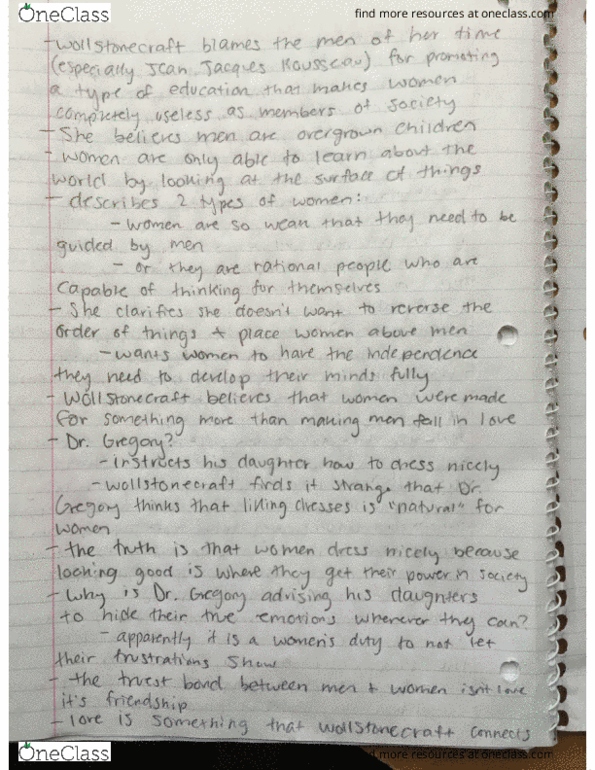 OneClass
find more resources at oneclass.com
- Wollstonecraft blames the men of her time
(especially Jean Jacques Rousseau) for promoting
a type of education that makes women
completely useless as members of society
- She believes men are overgrown children
- women are only able to learn about the
world by looking at the surface of things
- describes 2 types of women:
- women are so wean that they need to be
guided by men
- or they are rational people who are
capable of thinking for themselves
- She clarifies she doesn't want to reverse the
order of things + place women above men
- wants women to have the independence
they need to develop their minds fully
- Wollstonecraft believes that women were made
for something more than making men fall in love
- Dr. Gregory?
- instructs his daughter how to dress nicely
- wollstonecraft finds it strange that Dr.
Gregory thinks that liking dresses is "natural" for
women
- the truth is that women dress nicely because
looking good is where they get their power in society
- Why is Dr. Gregory advising his daughters
to hide their true emotions whenever they can?
- apparently it is a women's duty to not let
their frustrations show
- the truest bond between men + women isn't love
it's friendship
- love is something that wollstonecraft connects
OneClass
find more resources at oneclass.com